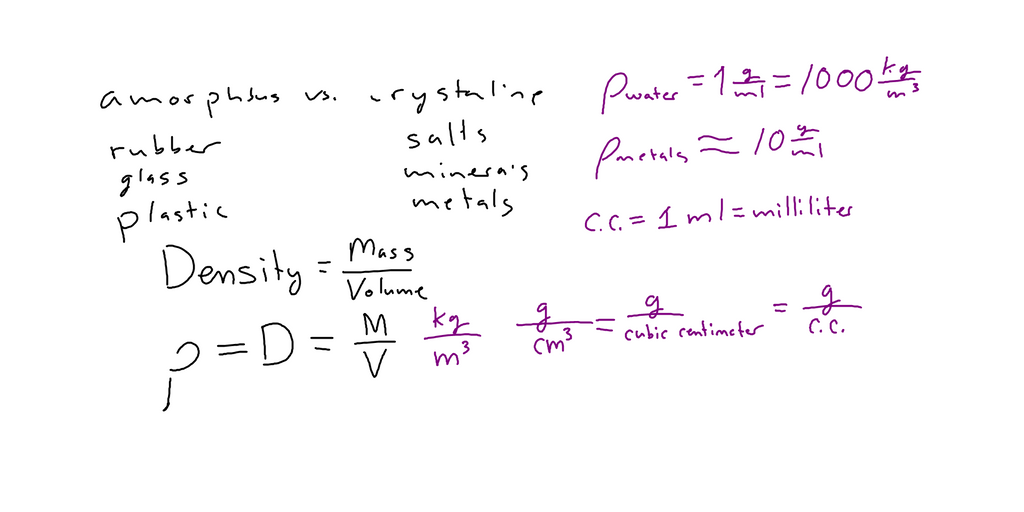 amorphous vs. crystaline
rubber salts
glass minerals
plastic metals
ρwater = 1 g/ml = 1000 kg/m³
ρmetals ≈ 10 g/ml
c.c. = 1 ml = milliliter
Density = Mass/Volume
ρ = D = M/V kg/m³ g/cm³ = g/cubic centimeter = g/c.c.